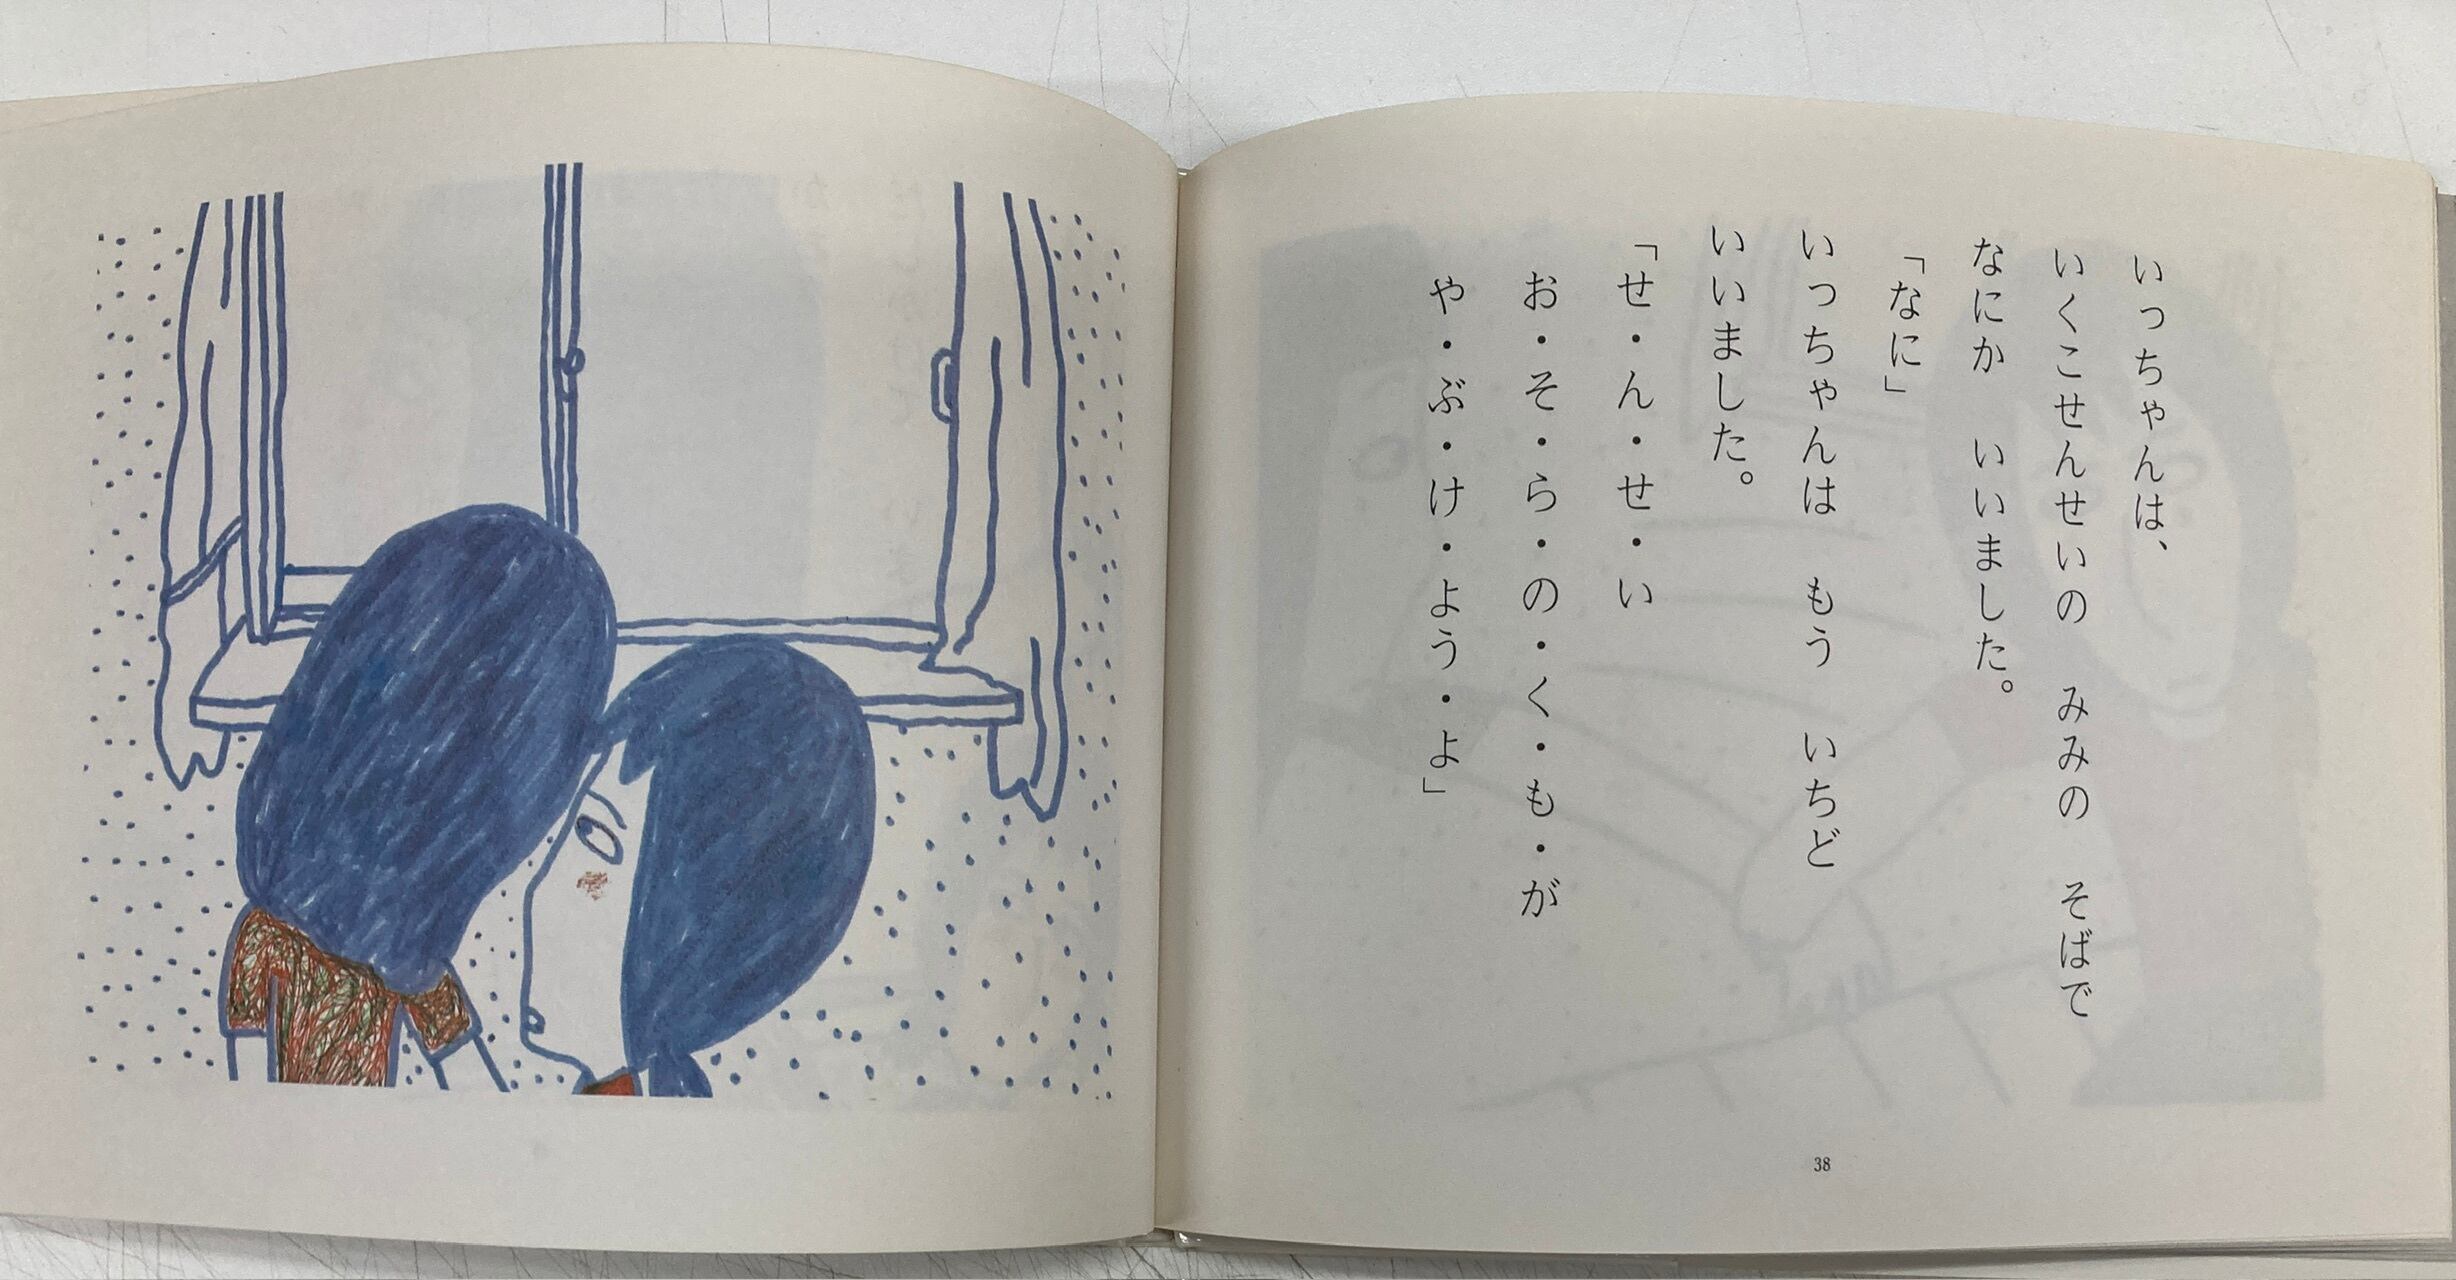 いっちゃんは、
いくこせんせいの　みみの　そばで
なにか　いいました。
「なに」
いっちゃんは　もう　いちど
いいました。
「せ・ん・せ・い
お・そ・ら・の・く・も・が
や・ぶ・け・よう・よ」
38